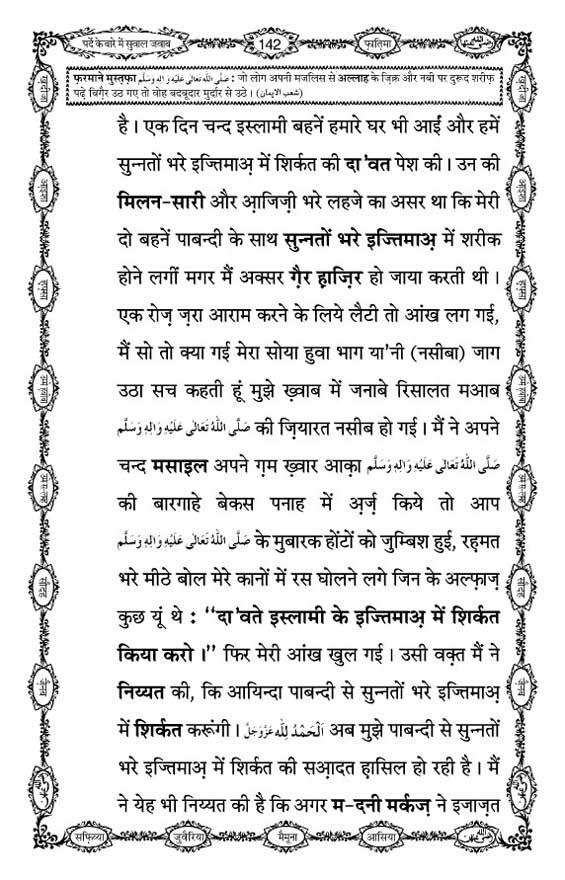 पर्दे के बारे में सुवाल जवाब 142 फ़ातिमा
फ़रमाने मुस्तफ़ा صَلَّى اللّٰهُ تَعَالٰى عَلَيْهِ وَاٰلِهٖ وَسَلَّم : जो लोग अपनी मजलिस से अल्लाह के ज़िक्र और नबी पर दुरूद शरीफ़
पढ़े बिग़ैर उठ गए तो वोह बदबूदार मुर्दार से उठे । (شعب الایمان)
है । एक दिन चन्द इस्लामी बहनें हमारे घर भी आईं और हमें
सुन्नतों भरे इज्तिमाअ़ में शिर्कत की दा'वत पेश की । उन की
मिलन-सारी और आ़जिज़ी भरे लहजे का असर था कि मेरी
दो बहनें पाबन्दी के साथ सुन्नतों भरे इज्तिमाअ़ में शरीक
होने लगीं मगर मैं अक्सर ग़ैर ह़ाज़िर हो जाया करती थी ।
एक रोज़ ज़रा आराम करने के लिये लैटी तो आंख लग गई,
मैं सो तो क्या गई मेरा सोया हुवा भाग या'नी (नसीबा) जाग
उठा सच कहती हूं मुझे ख़्वाब में जनाबे रिसालत मआब
صَلَّى اللّٰهُ تَعَالٰى عَلَيْهِ وَاٰلِهٖ وَسَلَّم की ज़ियारत नसीब हो गई । मैं ने अपने
चन्द मसाइल अपने ग़म ख़्वार आक़ा صَلَّى اللّٰهُ تَعَالٰى عَلَيْهِ وَاٰلِهٖ وَسَلَّم
की बारगाहे बेकस पनाह में अ़र्ज़ किये तो आप
صَلَّى اللّٰهُ تَعَالٰى عَلَيْهِ وَاٰلِهٖ وَسَلَّم के मुबारक होंटों को जुम्बिश हुई, रह़मत
भरे मीठे बोल मेरे कानों में रस घोलने लगे जिन के अल्फ़ाज़
कुछ यूं थे : ‘‘दा'वते इस्लामी के इज्तिमाअ़ में शिर्कत
किया करो ।’’ फिर मेरी आंख खुल गई । उसी वक़्त मैं ने
निय्यत की, कि आयिन्दा पाबन्दी से सुन्नतों भरे इज्तिमाअ़
में शिर्कत करूंगी । اَلْحَمْدُ لِلّٰه عَزَّوَجَلَّ अब मुझे पाबन्दी से सुन्नतों
भरे इज्तिमाअ़ में शिर्कत की सआ़दत ह़ासिल हो रही है । मैं
ने येह भी निय्यत की है कि अगर म-दनी मर्कज़ ने इजाज़त
सफ़िय्या जुवैरिया मैमूना आसिया